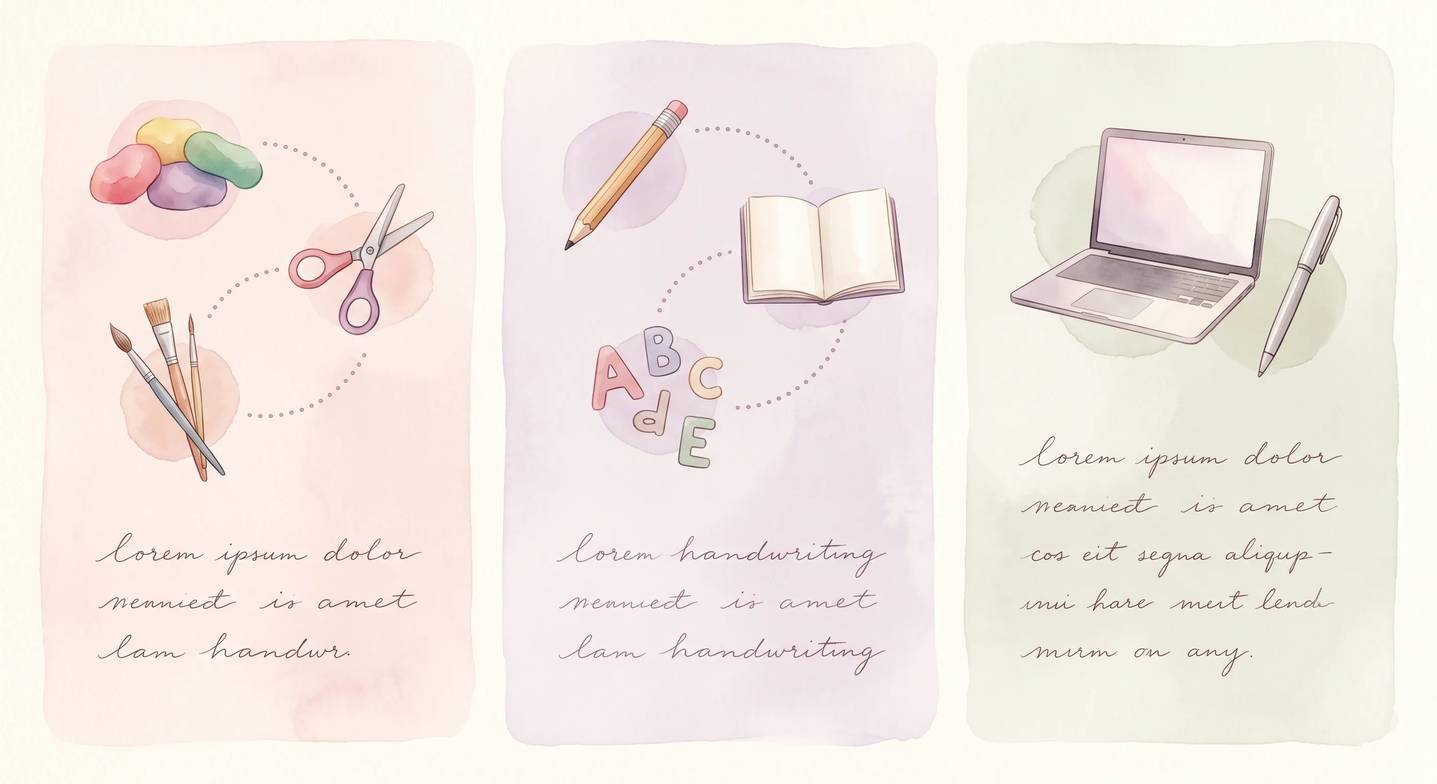 A B C d E
lorem ipsum dolor
nennied is amet
lam handwr.
lorem handwriting
nennied is amet
lam handwriting
lorem ipsum dolor
is amet
cos eit segna aliqup-
hare lende
on any.